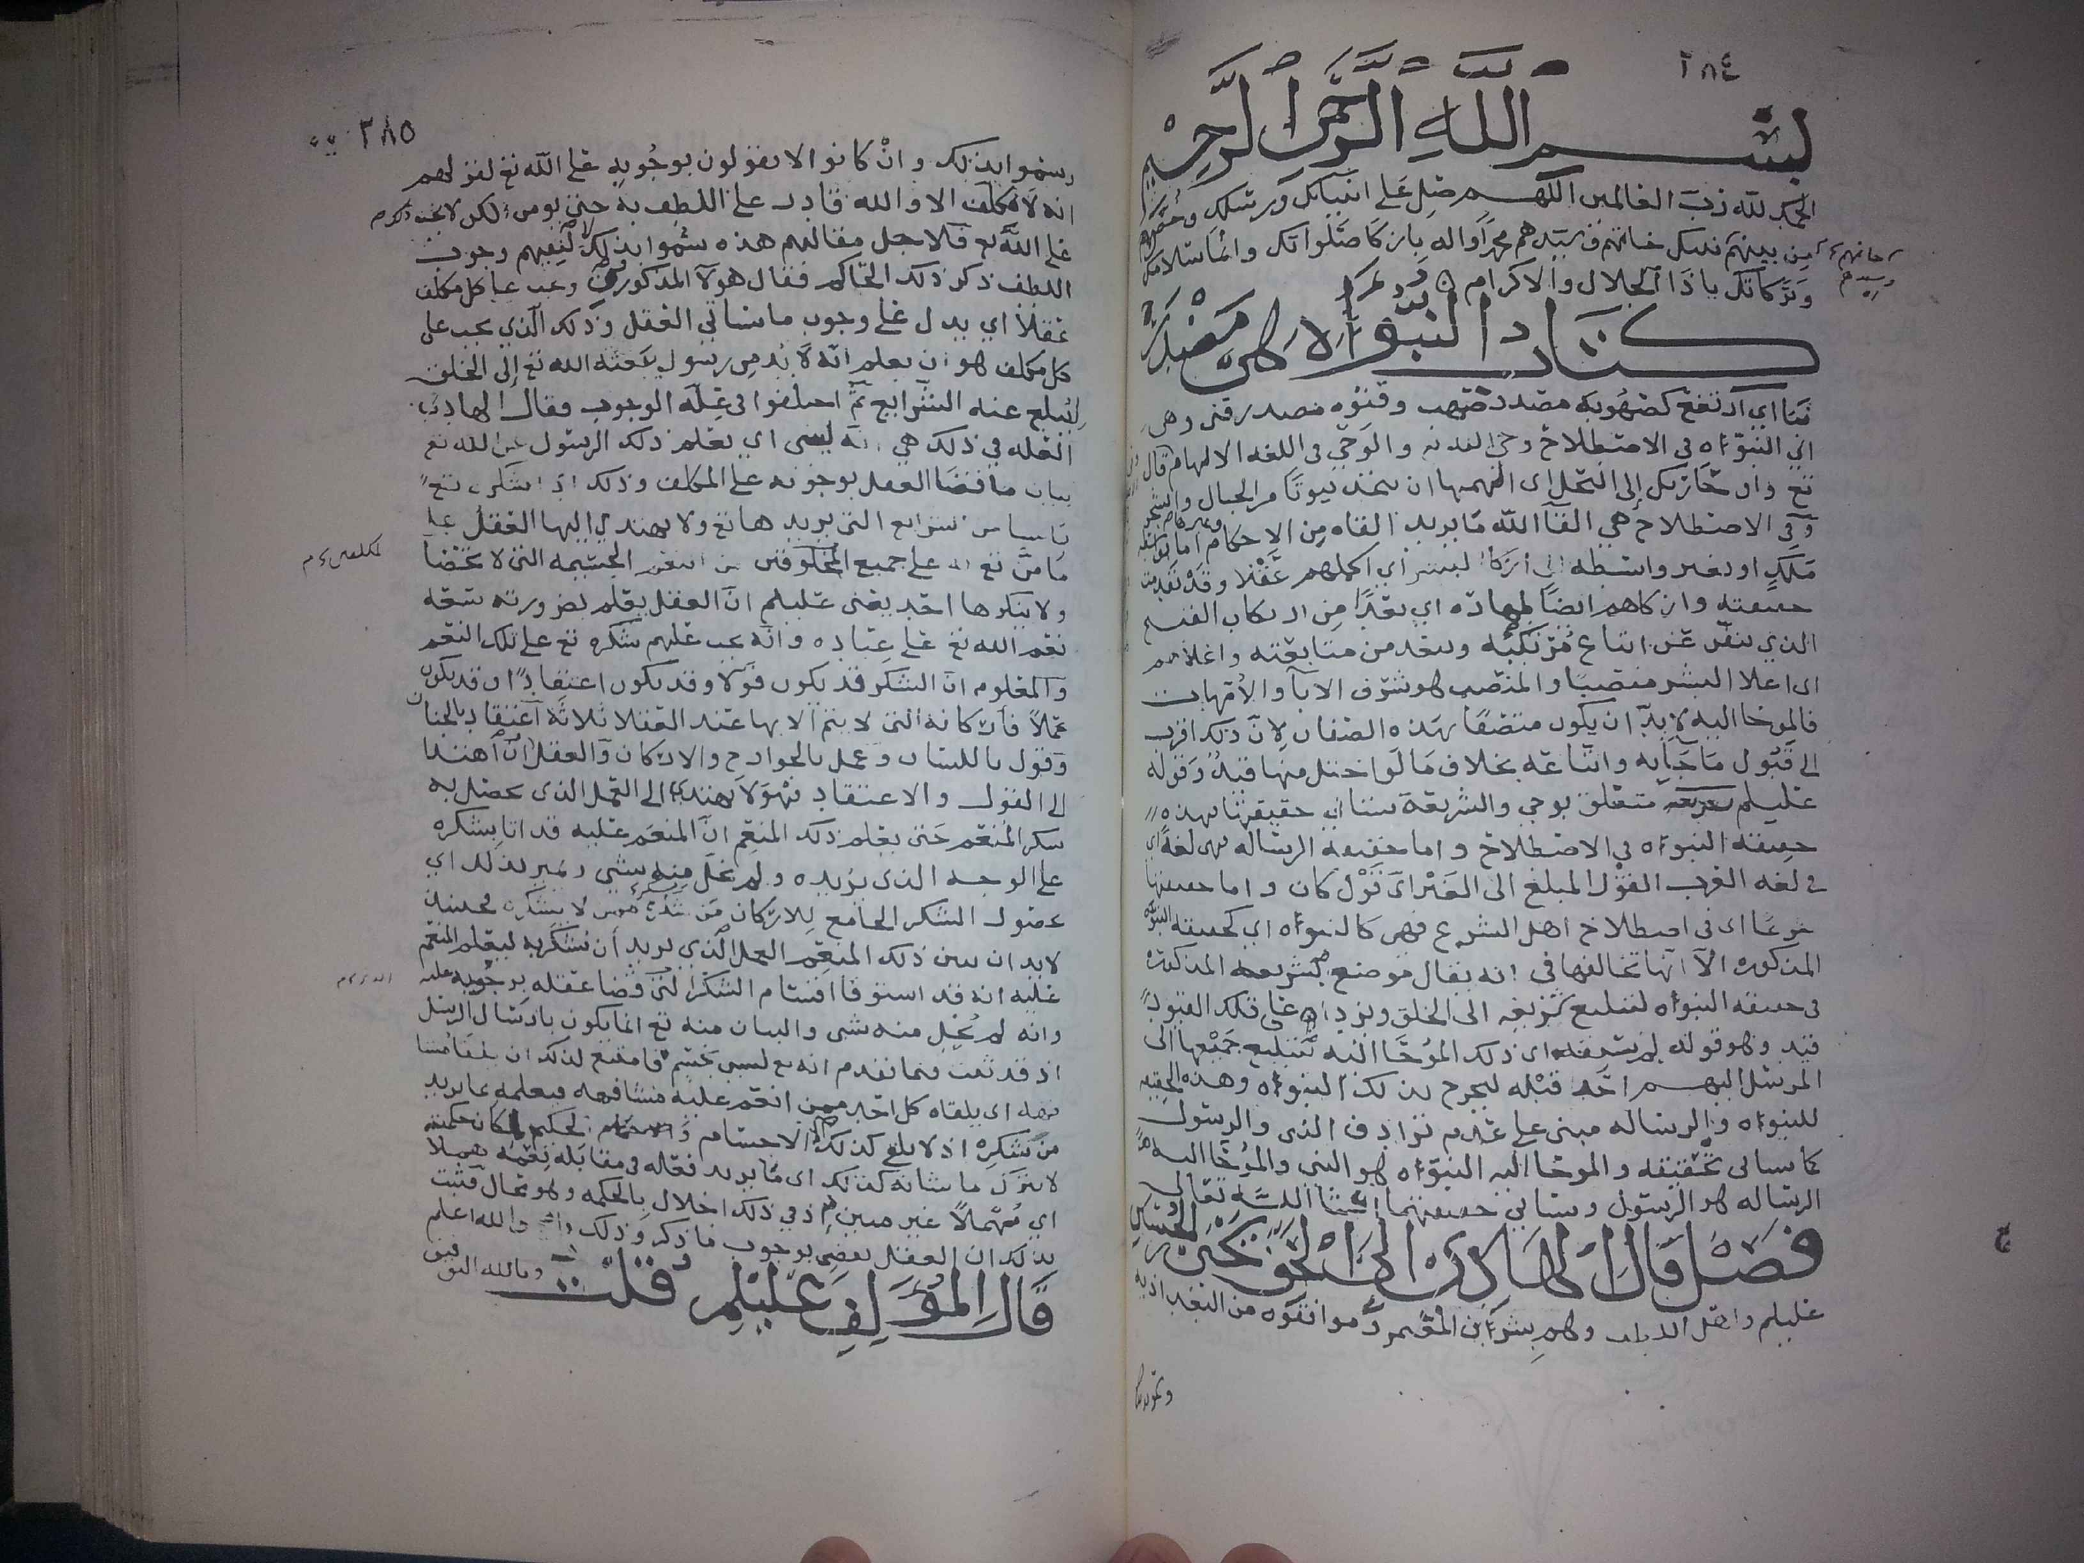 ٢٨٤
بسم الله الرحمن الرحيم
الحمد لله رب العالمين اللهم صل على انبيائك ورسلك وخص
من بينهم خاتمهم وسيدهم محمدا واله بازكا صلواتك وانما سلامك
وبركاتك يا ذا الجلال والاكرام
كتاب النبوة هي مصدر
نبا اي ارتفع كصهوبه مصدر صهب وقنوه مصدر قنى وهي
اي النبوءة في الاصطلاح وحي الله تع والوحي في اللغه الالهام قال
تع واوحى ربك إلى النحل اي الهمها ان تتخذ بيوتا من الجبال والشجر
وفي الاصطلاح هي القآ الله ما يريد القاه من الاحكام اما بواسطه
ملك او بغير واسطه إلى ازكا البشر اي اكملهم عقلا وقد تقدمت
حقيقته وازكاهم ايضا طهاره اي بعدا من ارتكاب القبيح
الذي ينفر عن اتباع مرتكبه ويبعد من متابعته واعلاهم
اى اعلا البشر منصبا والمنصب هو شرف الابآ والأمهات
فالموحا اليه لا بد ان يكون متصفا بهذه الصفات لان ذلك اقرب
الى قبول ما جآ به واتباعه بخلاف ما لو اختل منها قيد وقوله
عليلم بشريعه متعلق بوحي والشريعة ستاتي حقيقتها بهذه
حقيقة النبوءه في الاصطلاح واما حقيقة الرساله فهى لغة اي
في لغه العرب القول المبلغ الى الغير اي قول كان واما حقيقتها
شرعا اى فى اصطلاح اهل الشرع فهى كالنبوءه اي كحقيقة النبوءه
المذكوره الا انها تخالفها في انه يقال موضع بشريعه المذكوره
في حقيقه النبوءه لتبليغ شريعه الى الخلق ويزيد على تلك القيود
قيد وهو قوله لم يسبقه اى ذلك الموحا اليه بتبليغ جميعها الى
المرسل اليهم احد قبله ليخرج بذلك النبوءه وهذه الحقيقه
للنبوءه والرساله مبنى على عدم ترادف النبي والرسول
كما سياتى تحقيقه والموحا اليه النبوءه هو النبي والموحا اليه
الرساله هو الرسول وستاتي حقيقتهما انشا الله تعالى
فصل قال الهادي الى الحق يحيى بن الحسين
عليلم واهل اللطف وهم بشر بن المعتمر وموافقوه من البغداذيه
٢٨٥
وسموا بذلك وان كانوا لا يقولون بوجوبه على الله تع لقولهم
انه لا مكلف الا والله قادر على اللطف به حتى يومن لكن لا يجب
على الله تع فلاجل مقالتهم هذه سموا بذلك لنفيهم وجوب
اللطف ذكر ذلك الحاكم فقال هولآ المذكورون وتجب على كل مكلف
عقلا اي يدل على وجوب ما سياتي العقل وذلك الذي يجب على
كل مكلف هو ان يعلم انه لا بد من رسول يبعثه الله تع إلى الخلق
ليبلغ عنه الشرايع ثم اختلفوا في علة الوجوب فقال الهادي
العله في ذلك هي انه ليس اي يعلم ذلك الرسول عن الله تع
بيان ما قضا العقل بوجوبه على المكلف وذلك اي شكره تع
بأساس شرايع التي يريدها تع ولا يهتدي إليها العقل على
ما من تع به على جميع المخلوقين من النعم الجسيمه التى لا تحصا
ولا ينكرها احد يعنى عليلم ان العقل يعلم بضرورته سعه
نعم الله تع على عباده وانه يجب عليهم شكره تع على تلك النعم
والمعلوم ان الشكر قد يكون قولا وقد يكون اعتقادا وقد يكون
عملا فأركانه التى لا يتم الا بها عند العقلا ثلاثة اعتقاد بالجنان
وقول باللسان وعمل بالجوارح والاركان والعقل ان اهتدا
الى القول والاعتقاد فهو لا يهتدي الى العمل الذى يحصل به
شكر المنعم حتى يعلم ذلك المنعم ان المنعم عليه قد اتا بشكره
على الوجه الذى يريده ولم يخل منه بشى وتميز بذلك اي
بحصول الشكر الجامع للاركان من شكره ممن لا يشكره فحينئذ
لا بد ان يبين ذلك المنعم العمل الذي يريد أن يشكر به ليعلم المنعم
عليه انه قد استوفا اقسام الشكر التى قضا عقله بوجوبه عليه
وانه لم يخل منه بشى والبيان منه تع انما يكون بارسال الرسل
اذ قد ثبت فيما تقدم انه تع ليس بجسم فامتنع لذلك ان يلقا مشا
فهة اى يلقاه كل احد ممن انعم عليه مشافهه فيعلمه بما يريد
من شكره اذ لا يلقى كذلك الا الاجسام والحكيم لمكان حكمته
لا يترك ما شانه كذلك اى ما يريد فعاله في مقابله نعمه هملا
اي مهملا غير مبين اذ في ذلك اخلال بالحكمه وهو محال فثبت
بذلك ان العقل يقضي بوجوب ما ذكر وذلك واضح والله اعلم
وبالله التوفيق
قال المؤلف عليلم قلت